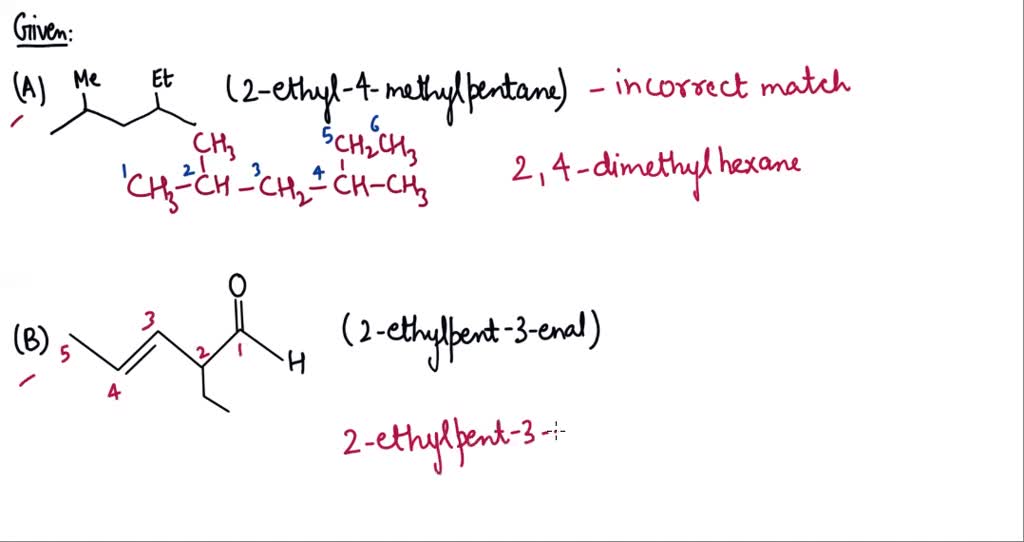 Given:
(A) Me Et (2-ethyl-4-methylpentane) - incorrect match
CH3 5 CH2CH3 6
1 CH3-2 CH-3 CH2-4 CH-CH3 2,4-dimethylhexane
O
(B) 5 4 3 2 1 H (2-ethylpent-3-enal)
2-ethylpent-3-